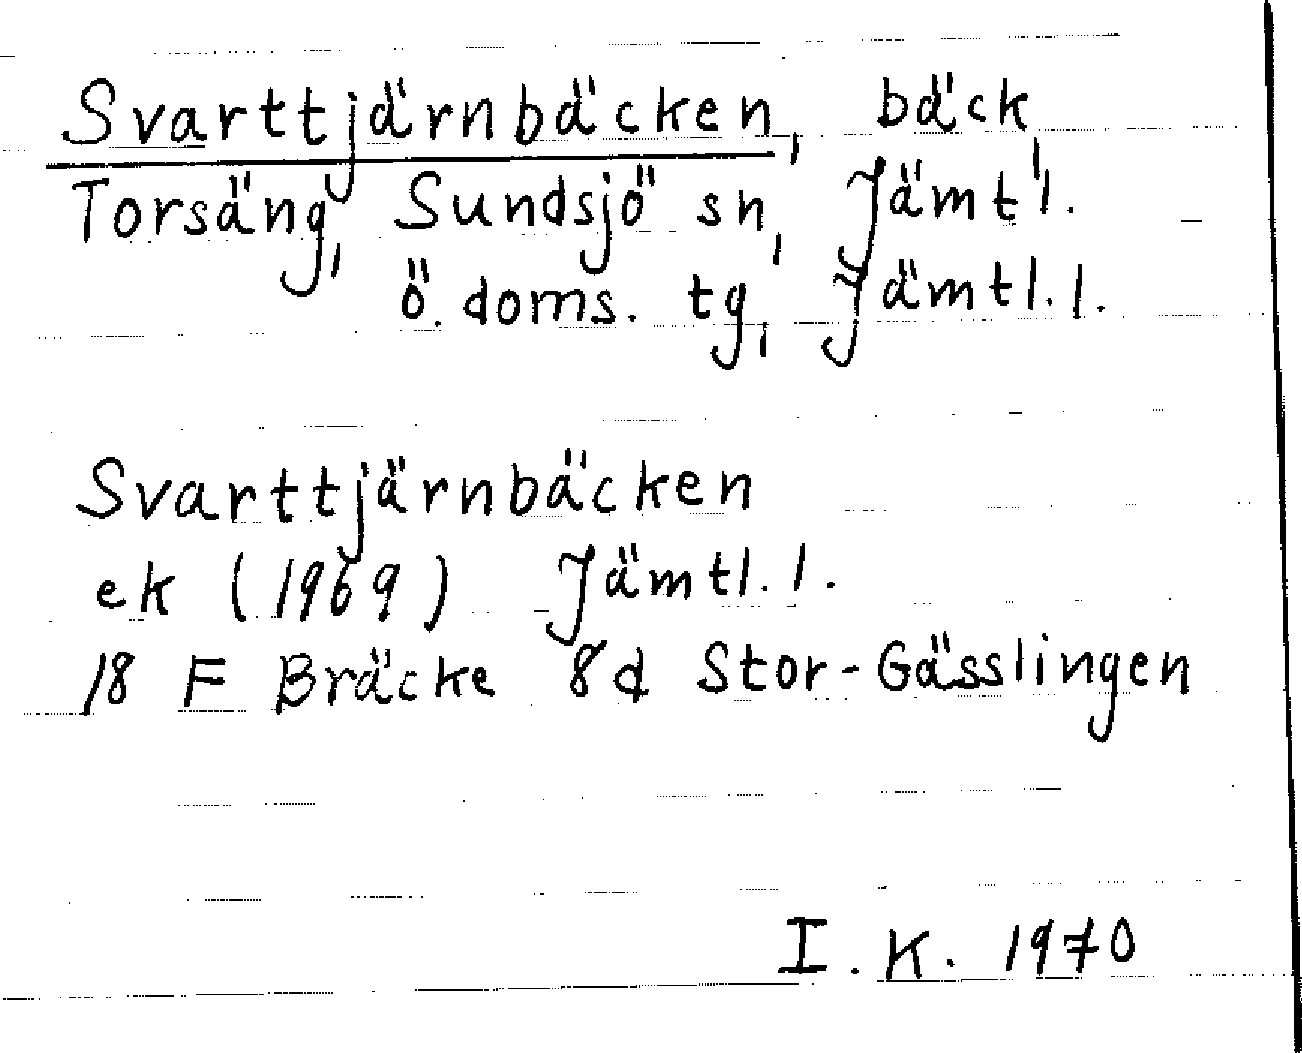 Svarttjärnbäcken, bäck,
Torsäng, Sundsjö sn, Jämtl.
ö. doms. tg, Jämtl. l.
Svarttjärnbäcken
ek (1969) Jämtl. l.
18 F Bräcke 8d Stor-Gässlingen
I. K. 1970